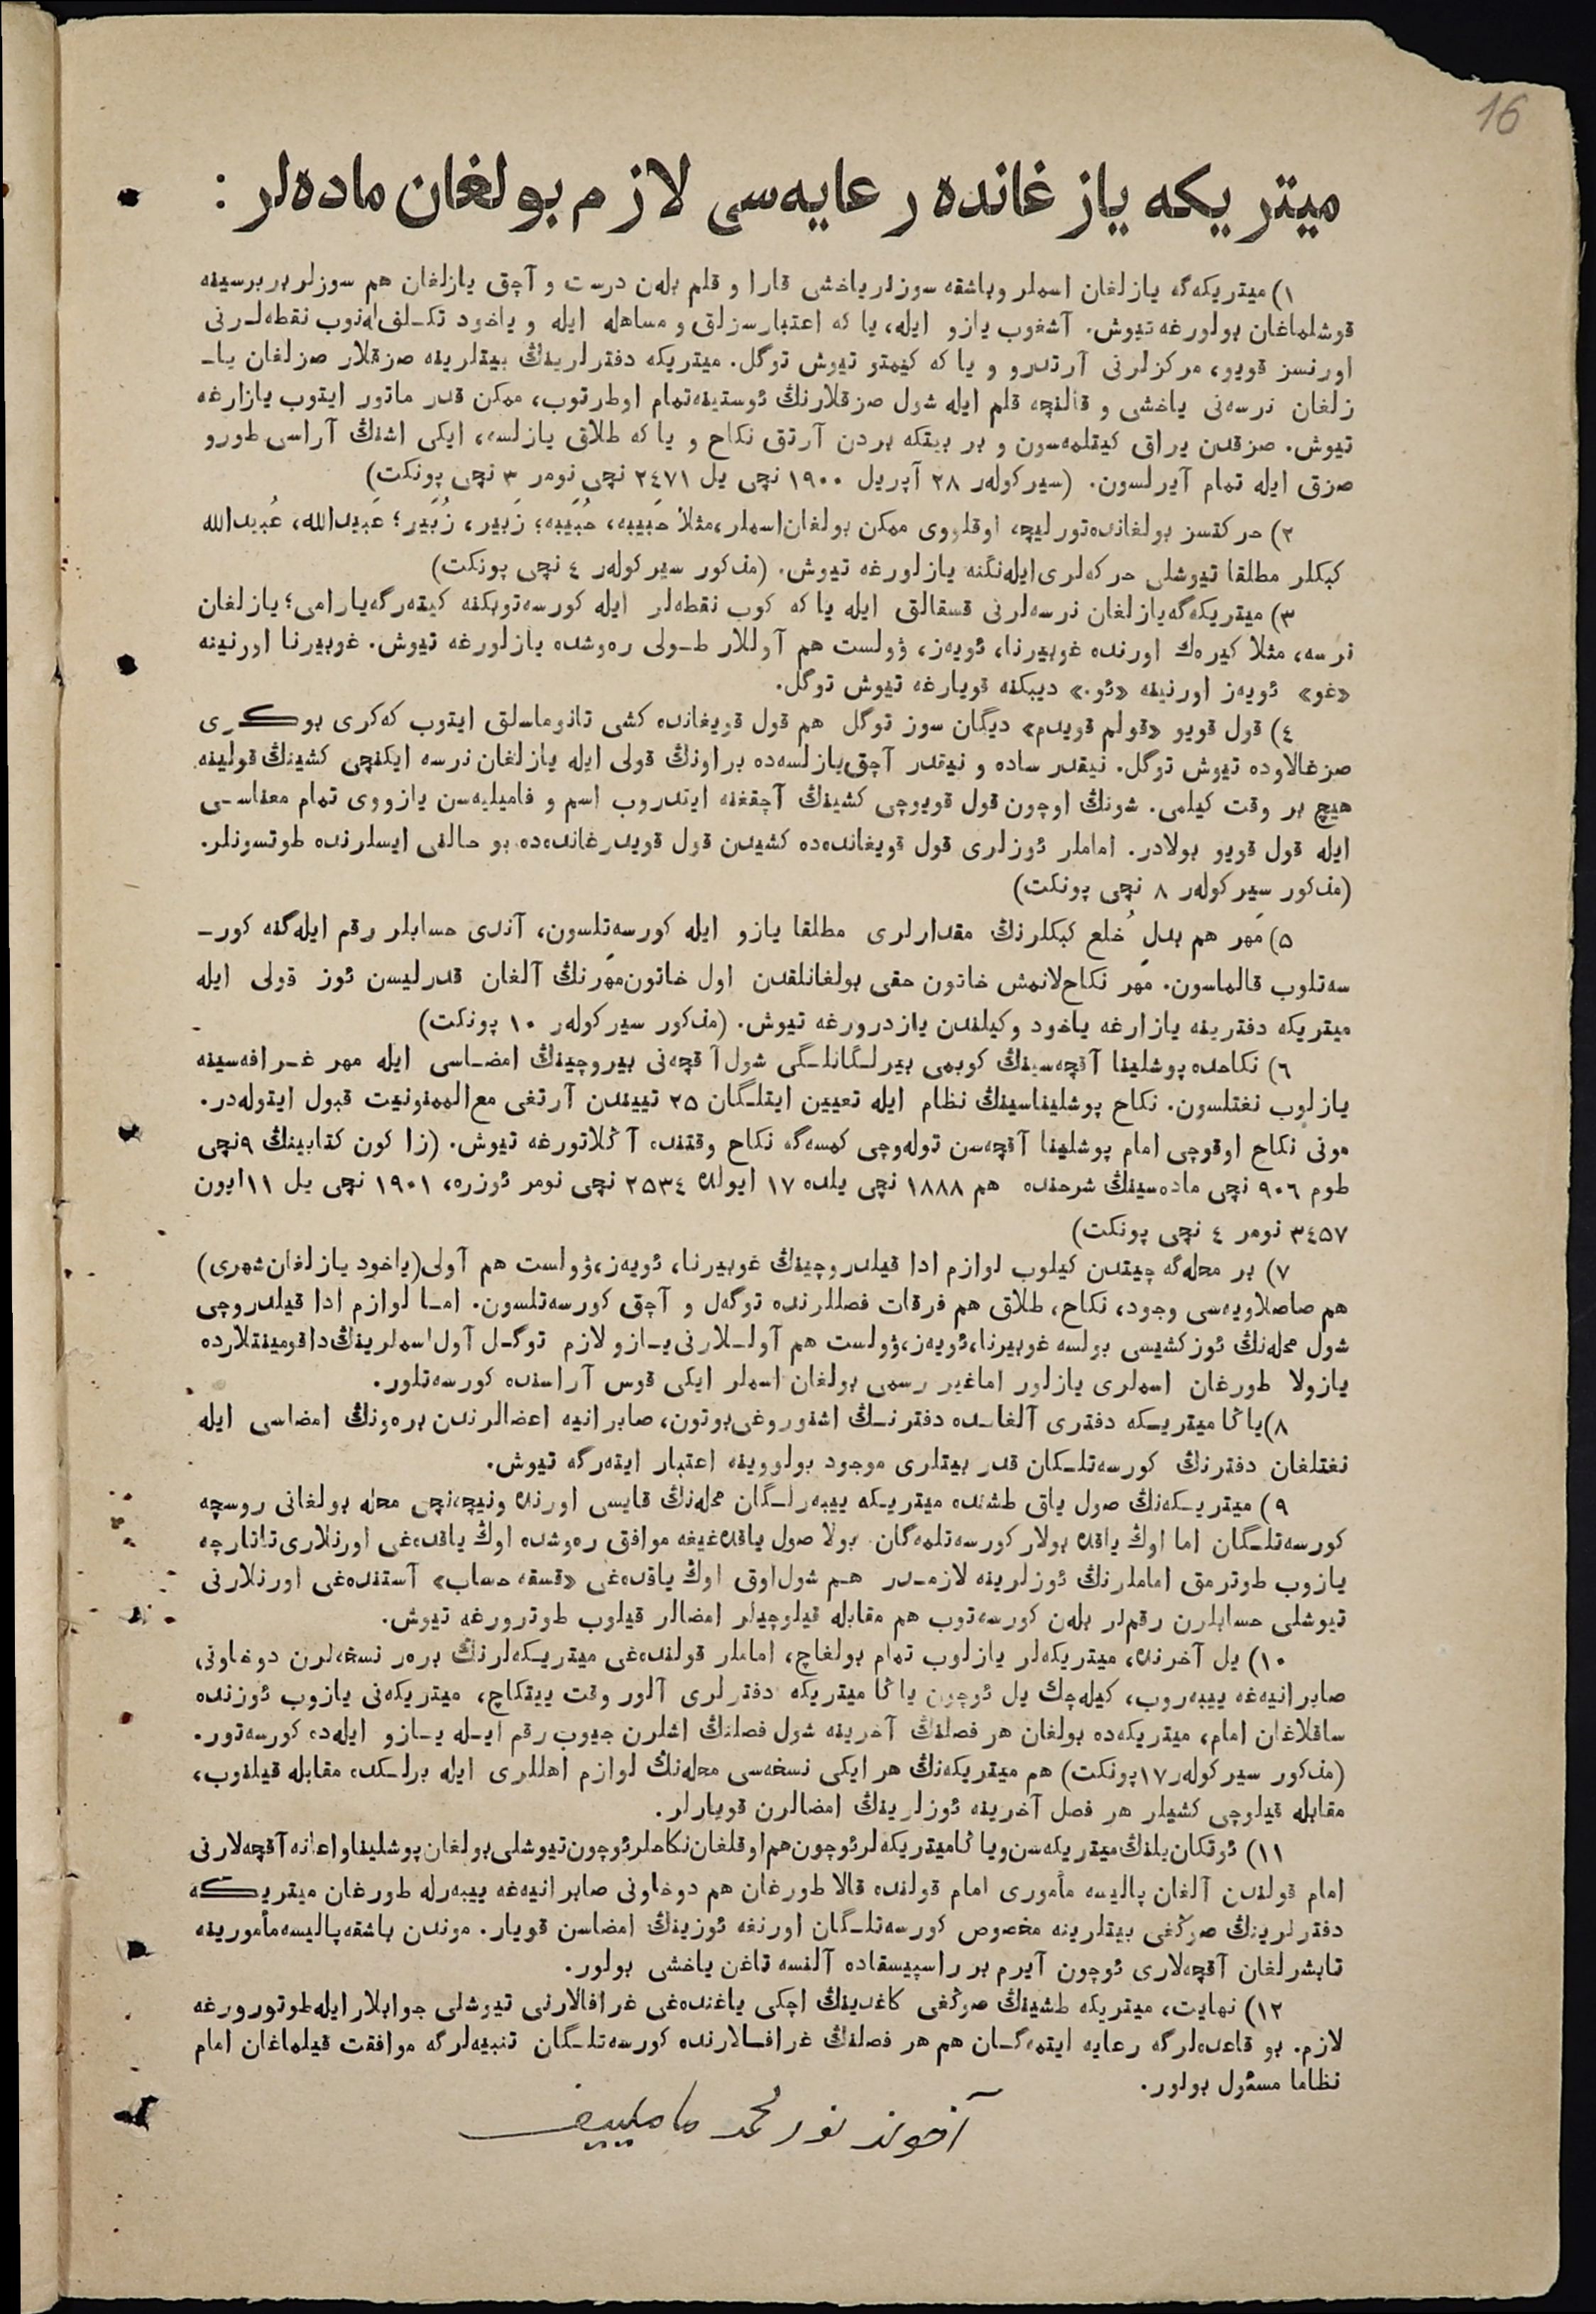 16
میتریکه یازغانده رعایه‌سی لازم بولغان ماده‌لر :
١) میتریکه‌گه یازلغان اسملر وباشقه سوزلر یاخشی قارا و قلم بله‌ن درست و آچق یازلغان هم سوزلر بربرسینه
قوشلماغان بولورغه تیوش. آشغوب یازو ایله، یا که اعتبارسزلق و مساهله ایله و یاخود تکـلف‌له‌نوب نقطه‌لـرنی
اورنسز قویو، مرکزلرنی آرتدرو و یا که کیمتو تیوش توگل. میتریکه دفترلرینڭ بیتلرینه صزقلار صزلغان یاـ
زلغان نرسه‌نی یاخشی و قالنچه قلم ایله شول صزقلارنڭ ئوستینه‌تمام اوطرتوب، ممکن قدر ماتور ایتوب یازارغه
تیوش. صزقدن یراق کیتلمه‌سون و بر بیتکه بردن آرتق نکاح و یا که طلاق یازلسه، ایکی اشنڭ آراسی طورو
صزق ایله تمام آیرلسون. (سیرکوله‌ر ٢٨ آپریل ١٩٠٠ نچی یل ٢٤٧١ نچی نومر ٣ نچی پونکت)
٢) حرکتسز بولغانده‌تورلیچه اوقلووی ممکن بولغان‌اسملر،مثلا حَبیبه، حُبَیبه؛ زَبیر، زُبَیر؛ عَبیدالله، عُبیدالله
کبکلر مطلقا تیوشلی حرکه‌لری‌ایله‌نگنه یازلورغه تیوش. (مذکور سیرکوله‌ر ٤ نچی پونکت)
٣) میتریکه‌گه‌یازلغان نرسه‌لرنی قسقالق ایله یا که کوب نقطه‌لر ایله کورسه‌توبکنه کیته‌رگه‌یارامی؛ یازلغان
نرسه، مثلا کیره‌ك اورنده غوبیرنا، ئویه‌ز، ۋولست هم آوللار طـولی ره‌وشده یازلورغه تیوش. غوبیرنا اورنینه
«غو» ئویه‌ز اورنینه «ئو.» دیبکنه قویارغه تیوش توگل.
٤) قول قویو «قولم قویدم» دیگان سوز توگل هم قول قویغانده کشی تانوماسلق ایتوب که‌کری بوکـری
صزغالاوده تیوش توگل. نیقدر ساده و نیقدر آچق‌یازلسه‌ده براونڭ قولی ایله یازلغان نرسه ایکنچی کشینڭ قولینه
هیچ بر وقت کیلمی. شونڭ اوچون قول قویوچی کشینڭ آچقغنه ایتدروب اسم و فامیلیه‌سن یازووی تمام معناسـی
ایله قول قویو بولادر. اماملر ئوزلری قول قویغانده‌ده کشیدن قول قویدرغانده‌ده بو حالنی ایسلرنده طوتسونلر.
(مذکور سیرکوله‌ر ٨ نچی پونکت)
٥) مَهر هم بدلِ خُلع کبکلرنڭ مقدارلری مطلقا یازو ایله کورسه‌تلسون، آندی حسابلر رقم ایله‌گنه کورـ
سه‌تلوب قالماسون. مهر نکاح‌لانمش خاتون حقی بولغانلقدن اول خاتون‌مهرنڭ آلغان قدرلیسن ئوز قولی ایله
میتریکه دفترینه یازارغه یاخود وکیلندن یازدرورغه تیوش. (مذکور سیرکوله‌ر ١٠ پونکت)
٦) نکاحده پوشلینا آقچه‌سینڭ کوبمی بیرلـگانلـگی شول‌آقچه‌نی بیروچینڭ امضـاسی ایله مهر غـرافه‌سینه
یازلوب نغتلسون. نکاح پوشلیناسینڭ نظام ایله تعیین ایتلـگان ٢٥ تییندن آرتغی مع‌الممنونیت قبول ایتوله‌در.
مونی نکاح اوقوچی امام پوشلینا آقچه‌سن توله‌وچی کمسه‌گه نکاح وقتنده آڭلاتورغه تیوش. (زاکون کتابینڭ ٩نچی
طوم ٩٠٦ نچی ماده‌سینڭ شرحنده هم ١٨٨٨ نچی یلده ١٧ ایولده ٢٥٣٤ نچی نومر ئوزره، ١٩٠١ نچی یل ١١ایون
٣٤٥٧ نومر ٤ نچی پونکت)
٧) بر محله‌گه چیتدن کیلوب لوازم ادا قیلدروچینڭ غوبیرنا، ئویه‌ز،ۋولست هم آولی(یاخود یازلغان‌شهری)
هم صاصلاویه‌سی وجود، نکاح، طلاق هم فرقات فصللرنده توگه‌ل و آچق کورسه‌تلسون. امـا لوازم ادا قیلدروچی
شول محله‌نڭ ئوزکشیسی بولسه غوبیرنا،ئویه‌ز،ۋولست هم آولـلارنی‌یـازو لازم توگـل آول‌اسملرینڭ‌داقومینتلارده
یازولا طورغان اسملری یازلور اماغیر رسمی بولغان اسملر ایکی قوس آراسنده کورسه‌تلور.
٨)یاڭا میتریـکه دفتری آلغانـده دفترنـڭ اشنوروغی‌بوتون، صابرانیه اعضالرندن بره‌ونڭ امضاسی ایله
نغتلغان دفترنڭ کورسه‌تلـگان قدر بیتلری موجود بولووینه اعتبار ایته‌رگه تیوش.
٩) میتریـکه‌نڭ صول یاق طشنده میتریـکه ییبه‌رلـگان محله‌نڭ قایسی اورنده ونیچه‌نچی محله بولغانی روسچه
کورسه‌تلـگان اما اوڭ یاقده بولار کورسه‌تلمه‌گان. بولا صول یاقده‌غیغه موافق ره‌وشده اوڭ یاقده‌غی اورنلاری‌تاتارچه
یازوب طوترمق اماملرنڭ ئوزلرینه لازمـدر هـم شول‌اوق اوڭ یاقده‌غی «قسقه حساب» آستنده‌غی اورنلارنی
تیوشلی حسابلرن رقملر بله‌ن کورسه‌توب هم مقابله قیلوچیلر امضالر قیلوب طوترورغه تیوش.
١٠) یل آخرنده، میتریکه‌لر یازلوب تمام بولغاچ، اماملر قولنده‌غی میتریـکه‌لرنڭ بره‌ر نسخه‌لرن دوخاونی
صابرانیه‌غه ییبه‌روب، کیله‌چك یل ئوچون یاڭا میتریکه دفترلری آلور وقت ییتکاچ، میتریکه‌نی یازوب ئوزنده
ساقلاغان امام، میتریکه‌ده بولغان هر فصلنڭ آخرینه شول فصلنڭ اشلرن جیوب رقم ایـله یـازو ایله‌ده کورسه‌تور.
(مذکور سیرکوله‌ر١٧پونکت) هم میتریکه‌نڭ هر ایکی نسخه‌سی محله‌نڭ لوازم اهللری ایله برلـکده مقابله قیلنوب،
مقابله قیلوچی کشیلر هر فصل آخرینه ئوزلرینڭ امضالرن قویارلر.
١١) ئوتکان‌یلنڭ‌میتریکه‌سن‌ویاڭامیتریکه‌لرئوچون‌هم‌اوقلغان‌نکاحلرئوچون‌تیوشلی‌بولغان‌پوشلیناواعانه‌آقچه‌لارنی
امام قولندن آلغان پالیسه مأموری امام قولنده قالا طورغان هم دوخاونی صابرانیه‌غه ییبه‌رله طورغان میتریـکه
دفترلرینڭ صوڭغی بیتلرینه مخصوص کورسه‌تلـگان اورنغه ئوزینڭ امضاسن قویار. موندن باشقه‌پالیسه‌مأمورینه
تابشرلغان آقچه‌لاری ئوچون آیرم بر راسپیسقاده آلنسه تاغن یاخشی بولور.
١٢) نهایت، میتریکه طشینڭ صوڭغی کاغدینڭ اچکی یاغنده‌غی غرافالارنی تیوشلی جوابلارایله‌طوتورورغه
لازم. بو قاعده‌لرگه رعایه ایتمه‌گـان هم هر فصلنڭ غرافـالارنده کورسه‌تلـگان تنبیه‌لرگه موافقت قیلماغان امام
نظاما مسئول بولور.
آخوند نورمحمد ماملییف